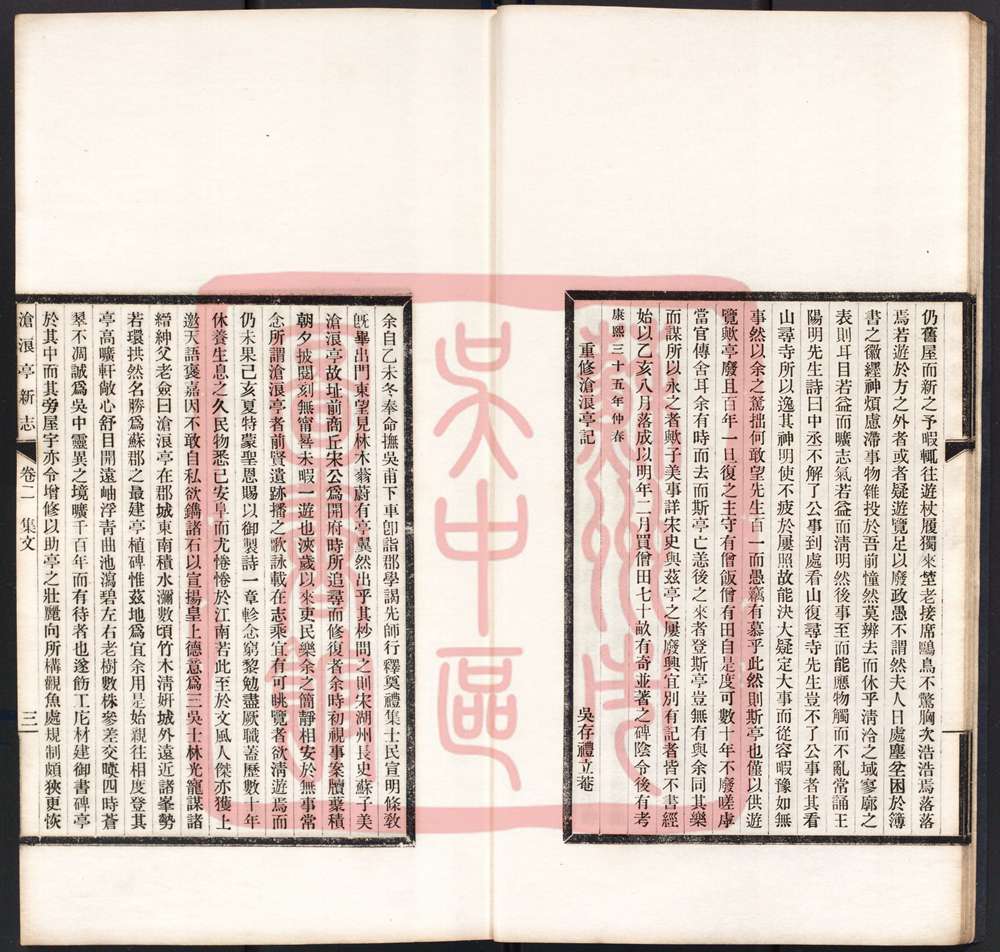 仍舊屋而新之予暇輒往遊杖履獨來埜老接席鷗鳥不驚胸次浩浩焉落落
焉若遊於方之外者或者疑遊覽足以廢政愚不謂然夫人日處塵坌困於簿
書之徽纆神煩慮滯事物雜投於吾前憧然莫辨去而休乎清泠之域寥廓之
表則耳目若益而曠志氣若益而淸明然後事至而能應物觸而不亂常誦王
陽明先生詩曰中丞不解了公事到處看山復尋寺先生豈不了公事者其看
山尋寺所以逸其神明使不疲於屢照故能決大疑定大事而從容暇豫如無
事然以余之駑拙何敢望先生百一而愚竊有慕乎此然則斯亭也僅以供遊
覽歟亭廢且百年一旦復之主守有僧飯僧有田自是度可數十年不廢嗟虖
當官傳舍耳余有時而去而斯亭亡恙後之來者登斯亭豈無有與余同其樂
而謀所以永之者歟子美事詳宋史與茲亭之屢廢興宜別有記者皆不書經
始以乙亥八月落成以明年二月買僧田七十畝有奇並著之碑陰令後有考
康熙三十五年仲春
重修滄浪亭記
吳存禮立菴
余自乙未冬奉命撫吳甫下車卽詣郡學謁先師行釋奠禮集士民宣明條敎
旣畢出門東望見林木蓊蔚有亭翼然出乎其杪問之則宋湖州長史蘇子美
滄浪亭故址前商丘宋公爲開府時所追尋而修復者余時初視事案牘葉積
朝夕披閱刻無甯晷未暇一遊也浹歲以來吏民樂余之簡靜相安於無事常
念所謂滄浪亭者前賢遺跡播之歌詠載在志乘宜有可眺覽者欲淸遊焉而
仍未果己亥夏特蒙聖恩賜以御製詩一章軫念窮黎勉盡厥職蓋歷數十年
休養生息之久民物悉已安阜而尤惓惓於江南若此至於文風人傑亦獲上
邀天語褒嘉因不敢自私欲鐫諸石以宣揚皇上德意爲三吳士林光寵謀諸
縉紳父老僉曰滄浪亭在郡城東南積水瀰數頃竹木淸妍城外遠近諸峯勢
若環拱然名勝爲蘇郡之最建亭植碑惟茲地爲宜余用是始親往相度登其
亭高曠軒敞心舒目開遠岫浮靑曲池瀉碧左右老樹數株參差交暎四時蒼
翠不凋誠爲吳中靈異之境曠千百年而有待者也遂飭工庀材建御書碑亭
於其中而其旁屋宇亦令增修以助亭之壯麗向所構觀魚處規制頗狹更恢
滄浪亭新志
卷二
集文
三
吳中區